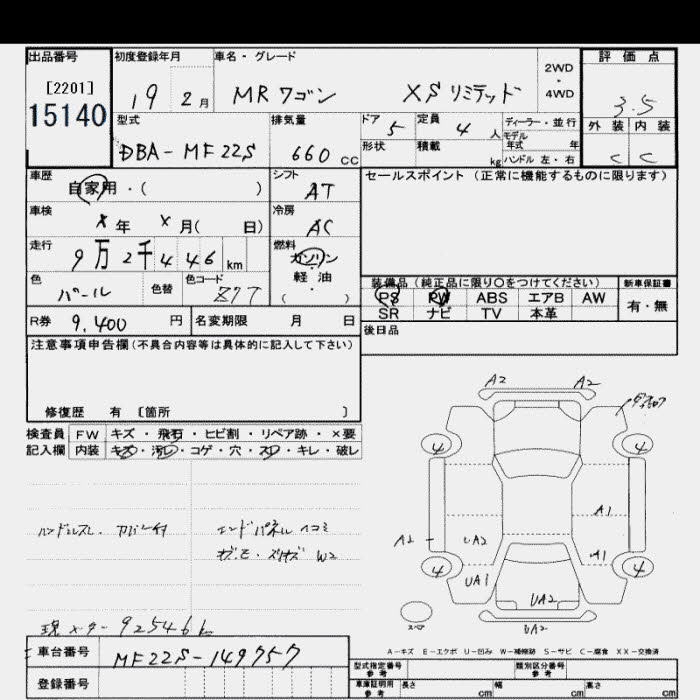 出品番号 初度登録年月 車名・グレード 2WD・4WD 評価点
[2201]
15140
19 2月 MRワゴン XSリミテッド 3.5
型式 排気量 ドア 5 定員 4人 ディーラー・並行 外装 内装
モデル年式 年
DBA-MF22S 660cc 形状 積載 kg ハンドル 左・右 C C
車歴 シフト セールスポイント(正常に機能するものに限ります)
自家用・( ) AT
車検 冷房
X年 X月( 日) AC
走行 燃料
9万2千446km ガソリン
軽油
・
( )
色 色替 色コード 装備品(純正品に限り○をつけてください) 新車保証書
パール Z7T PS PW ABS エアB AW 有・無
SR ナビ TV 本革
R券 9,400円 名変期限 月 日 後日品
注意事項申告欄(不具合内容等は具体的に記入して下さい)
修復歴 有 〔箇所 〕
検査員 FW キズ・飛石・ヒビ割・リペア跡・×要
記入欄 内装 キズ・汚レ・コゲ・穴・スレ・キレ・破レ
ハンドルスレ・カバー付 エンドパネルヘコミ
W2
現メーター 92546k
A2 A2
4 4
A1
A2 UA2 A1
4 4
UA1
UA2
スペア UA2
A-キズ E-エクボ U-凹み W-補修跡 S-サビ C-腐食 XX-交換済
車台番号 MF22S-149757
登録番号
型式指定番号 参考 類別区分番号 参考
車庫証明用 参考 長さ cm 幅 cm 高さ cm